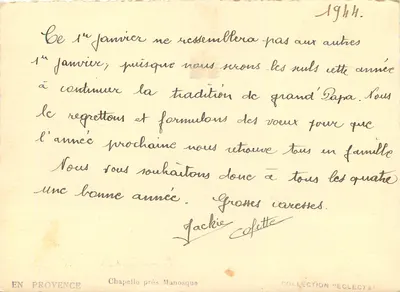 1944.
Ce 1er janvier ne ressemblera pas aux autres
1er janvier, puisque nous serons les seuls cette année
à continuer la tradition de grand'Papa. Nous
le regrettons et formulons des vœux pour que
l'année prochaine nous retrouve tous en famille
Nous vous souhaitons donc à tous les quatre
une bonne année. Grosses caresses.
Jackie Colette
EN PROVENCE Chapelle près Manosque COLLECTION "ECLECTA"